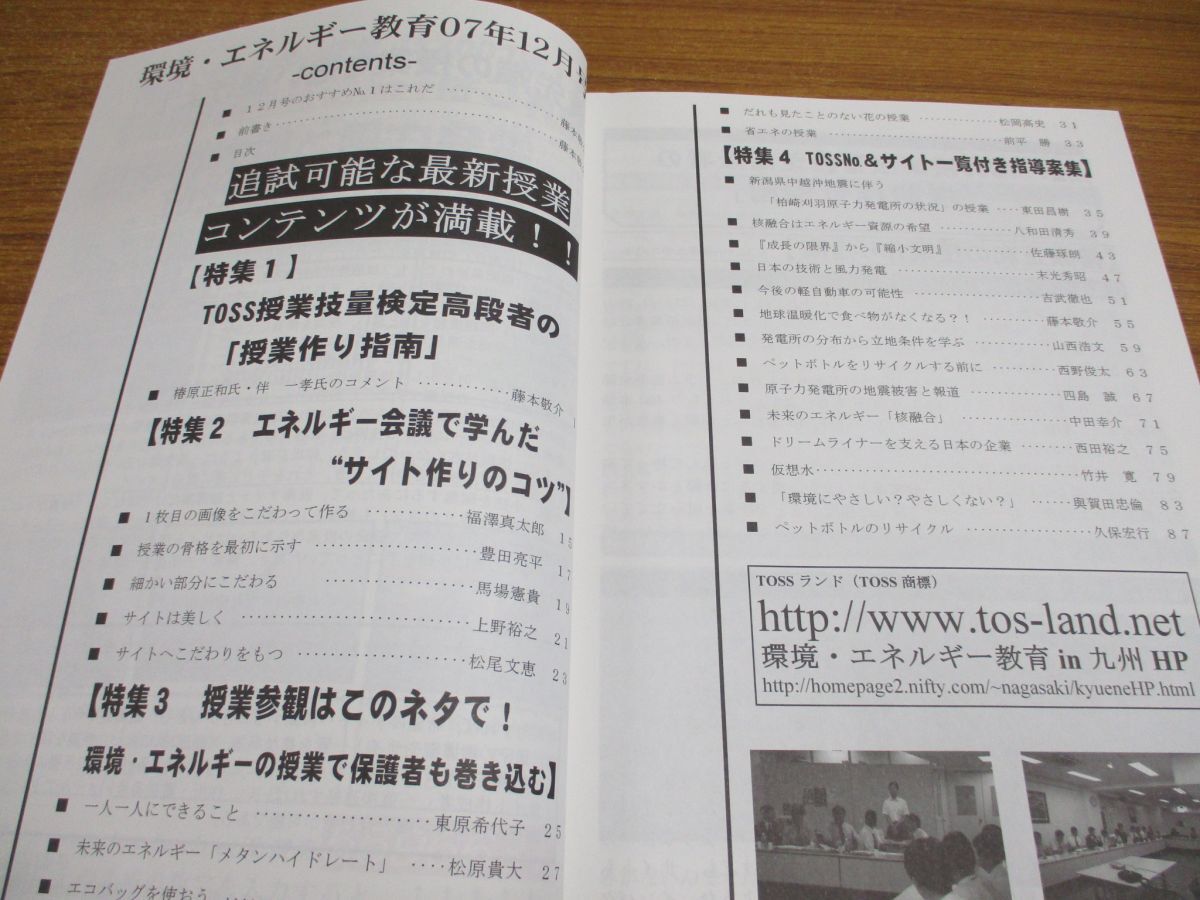 環境・エネルギー教育07年12月号
-contents-
■ 12月号のおすすめNo.1はこれだ ………………… 藤本敬
■ 前書き………………………………… 藤本敬
■ 目次
追試可能な最新授業
コンテンツが満載!!
【特集1】
TOSS授業技量検定高段者の
「授業作り指南」
■ 椿原正和氏・伴 一孝氏のコメント ………… 藤本敬介
【特集2 エネルギー会議で学んだ
“サイト作りのコツ”】
■ 1枚目の画像をこだわって作る ………… 福澤真太郎 15
■ 授業の骨格を最初に示す ………………… 豊田亮平 17
■ 細かい部分にこだわる ………………… 馬場憲貴 19
■ サイトは美しく ………………………… 上野裕之 21
■ サイトへこだわりをもつ ………………… 松尾文恵 23
【特集3 授業参観はこのネタで!
環境・エネルギーの授業で保護者も巻き込む】
■ 一人一人にできること ………………… 東原希代子 25
■ 未来のエネルギー「メタンハイドレート」 …. 松原貴大 27
■ エコバッグを使おう ….
■ だれも見たことのない花の授業 …………… 松岡高史 31
■ 省エネの授業 ………………………… 前平 勝 33
【特集4 TOSSNo.&サイト一覧付き指導案集】
■ 新潟県中越沖地震に伴う
「柏崎刈羽原子力発電所の状況」の授業 …… 東田昌樹 35
■ 核融合はエネルギー資源の希望 ………… 八和田清秀 39
■ 『成長の限界』から『縮小文明』 ………… 佐藤琢朗 43
■ 日本の技術と風力発電 ………………… 末光秀昭 47
■ 今後の軽自動車の可能性 ……………… 吉武徹也 51
■ 地球温暖化で食べ物がなくなる?! ………… 藤本敬介 55
■ 発電所の分布から立地条件を学ぶ ………… 山西浩文 59
■ ペットボトルをリサイクルする前に ………… 西野俊太 63
■ 原子力発電所の地震被害と報道 …………… 四島 誠 67
■ 未来のエネルギー「核融合」 ……………… 中田幸介 71
■ ドリームライナーを支える日本の企業 …… 西田裕之 75
■ 仮想水…………………………………… 竹井 寛 79
■ 「環境にやさしい?やさしくない?」 …… 奥賀田忠倫 83
■ ペットボトルのリサイクル ……………… 久保宏行 87
TOSS ランド(TOSS 商標)
http://www.tos-land.net
環境・エネルギー教育 in 九州 HP
http://homepage2.nifty.com/~nagasaki/kyueneHP.html